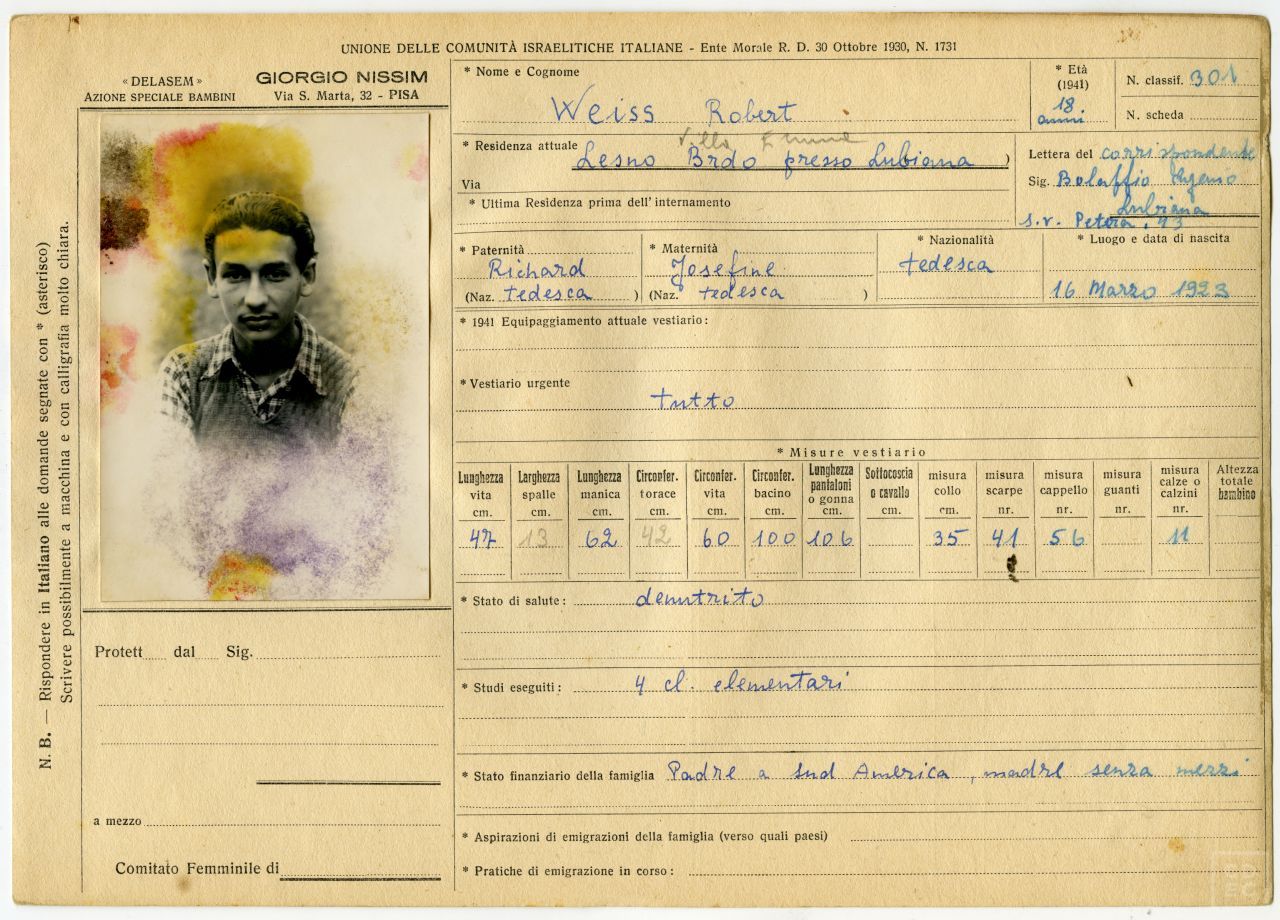 UNIONE DELLE COMUNITÀ ISRAELITICHE ITALIANE - Ente Morale R. D. 30 Ottobre 1930, N. 1731
« DELASEM »
AZIONE SPECIALE BAMBINI
GIORGIO NISSIM
Via S. Marta, 32 - PISA
* Nome e Cognome
Weiss Robert
* Età
(1941)
18
anni
N. classif. 301
N. scheda
Villa
* Residenza attuale Lesno Brdo presso Lubiana )
Via
* Ultima Residenza prima dell'internamento
Lettera del corrispondente
Sig. Bolaffio
Lubiana
s.v. Petera, 43
* Paternità
Richard
(Naz. tedesca )
* Maternità
Josefine
(Naz. tedesca )
* Nazionalità
tedesca
* Luogo e data di nascita
16 Marzo 1923
* 1941 Equipaggiamento attuale vestiario:
* Vestiario urgente
tutto
* Misure vestiario
Lunghezza vita cm. 47
Larghezza spalle cm. 13
Lunghezza manica cm. 62
Circonfer. torace cm. 42
Circonfer. vita cm. 60
Circonfer. bacino cm. 100
Lunghezza pantaloni o gonna cm. 106
Sottocoscia o cavallo cm.
misura collo cm. 35
misura scarpe nr. 41
misura cappello nr. 56
misura guanti nr.
misura calze o calzini nr. 11
Altezza totale bambino
* Stato di salute: denutrito
* Studi eseguiti: 4 cl. elementari
* Stato finanziario della famiglia Padre a Sud America, madre senza mezzi
* Aspirazioni di emigrazioni della famiglia (verso quali paesi)
* Pratiche di emigrazione in corso:
Protett dal Sig.
a mezzo
Comitato Femminile di
N. B. — Rispondere in Italiano alle domande segnate con * (asterisco)
Scrivere possibilmente a macchina e con calligrafia molto chiara.